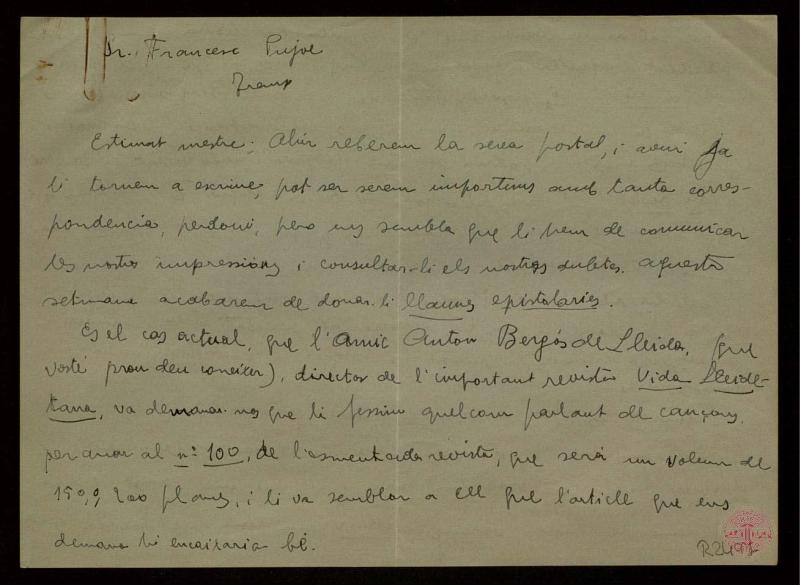 Sr. Francesc Pujol
Estimat mestre: Ahir rebérem la seva postal, i avui ja
li tornem a escriure, pot ser serem importuns amb tanta corres-
pondencia, perdoni, pero ens sembla que li hem de comunicar
les nostres impressions i consultar-li els nostres dubtes. Aquesta
setmana acabarem de donar-li llaunes epistolaries.
Es el cas actual, que l'amic Anton Bergós de Lleida, (que
vosté prou deu coneixer), director de l'important revista Vida Lleide-
tana, va demanar-nos que li fessim quelcom parlant de cançons,
per anar al nº 100, de l'esmentada revista, que será un volum de
150, o 200 planes, i li va semblar a ell que l'article que ens
demana hi encaixaria bé.